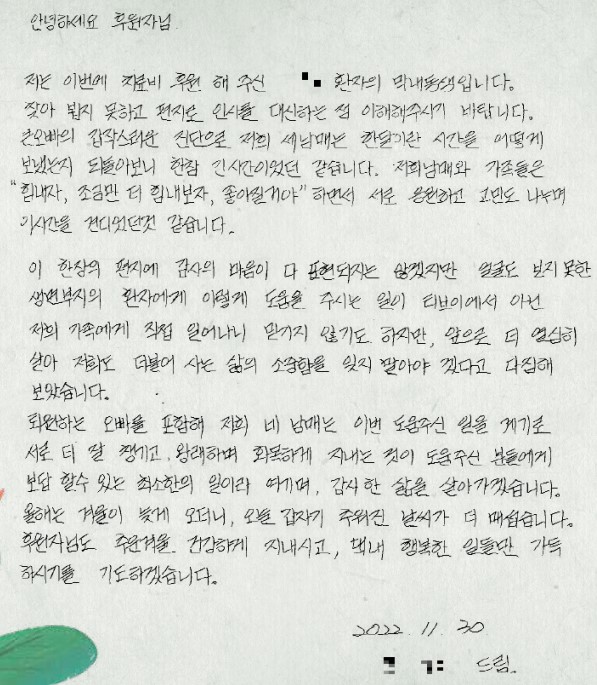 안녕하세요 후원자님.
저는 이번에 치료비 후원 해 주신 환자의 막내동생입니다.
찾아 뵙지 못하고 편지로 인사를 대신하는 점 이해해주시기 바랍니다.
큰오빠의 갑작스러운 진단으로 저희 세남매는 한달기란 시간을 어떻게
보냈는지 되돌아보니 한참 긴시간이었던 같습니다. 저희남매와 가족들은
"힘내자, 조금만 더 힘내보자, 좋아질거야" 하면서 서로 응원하고 고민도 나누며
이시간을 견디었던것 같습니다.
이 한장의 편지에 감사의 마음이 다 표현되지는 않겠지만 얼굴도 보지 못한
생면부지의 환자에게 이렇게 도움을 주시는 일이 티브이에서 아닌
저희 가족에게 직접 일어나니 믿기지 않기도 하지만, 앞으로 더 열심히
살아 저희도 더불어 사는 삶의 소중함을 잊지 말아야 겠다고 다짐해
보았습니다.
퇴원하는 오빠를 포함해 저희 네 남매는 이번 도움주신 일을 계기로
서로 더 잘 챙기고, 왕래하며 화목하게 지내는 것이 도움주신 분들에게
보답 할수 있는 최소한의 일이라 여기며, 감사한 삶을 살아가겠습니다.
올해는 겨울이 늦게 오더니, 오늘 갑자기 추워진 날씨가 더 매섭습니다.
후원자님도 추운겨울 건강하게 지내시고, 댁내 행복한 일들만 가득
하시기를 기도하겠습니다.
2022. 11. 30
드림.